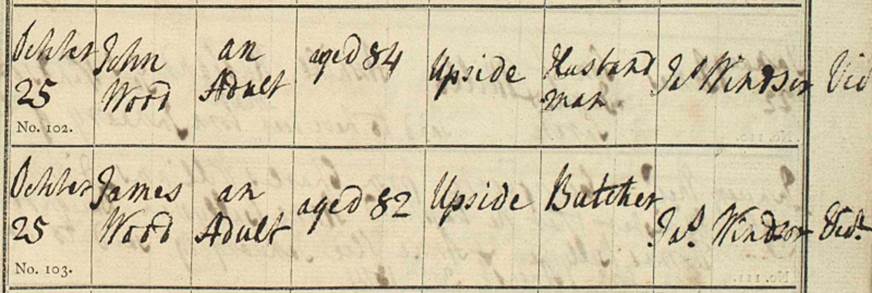 Octbr 25 No. 102. John Wood an Adult aged 84 Upside Husband man Jas Windsor
Octbr 25 No. 103. James Wood an Adult aged 82 Upside Butcher Jas. Windsor